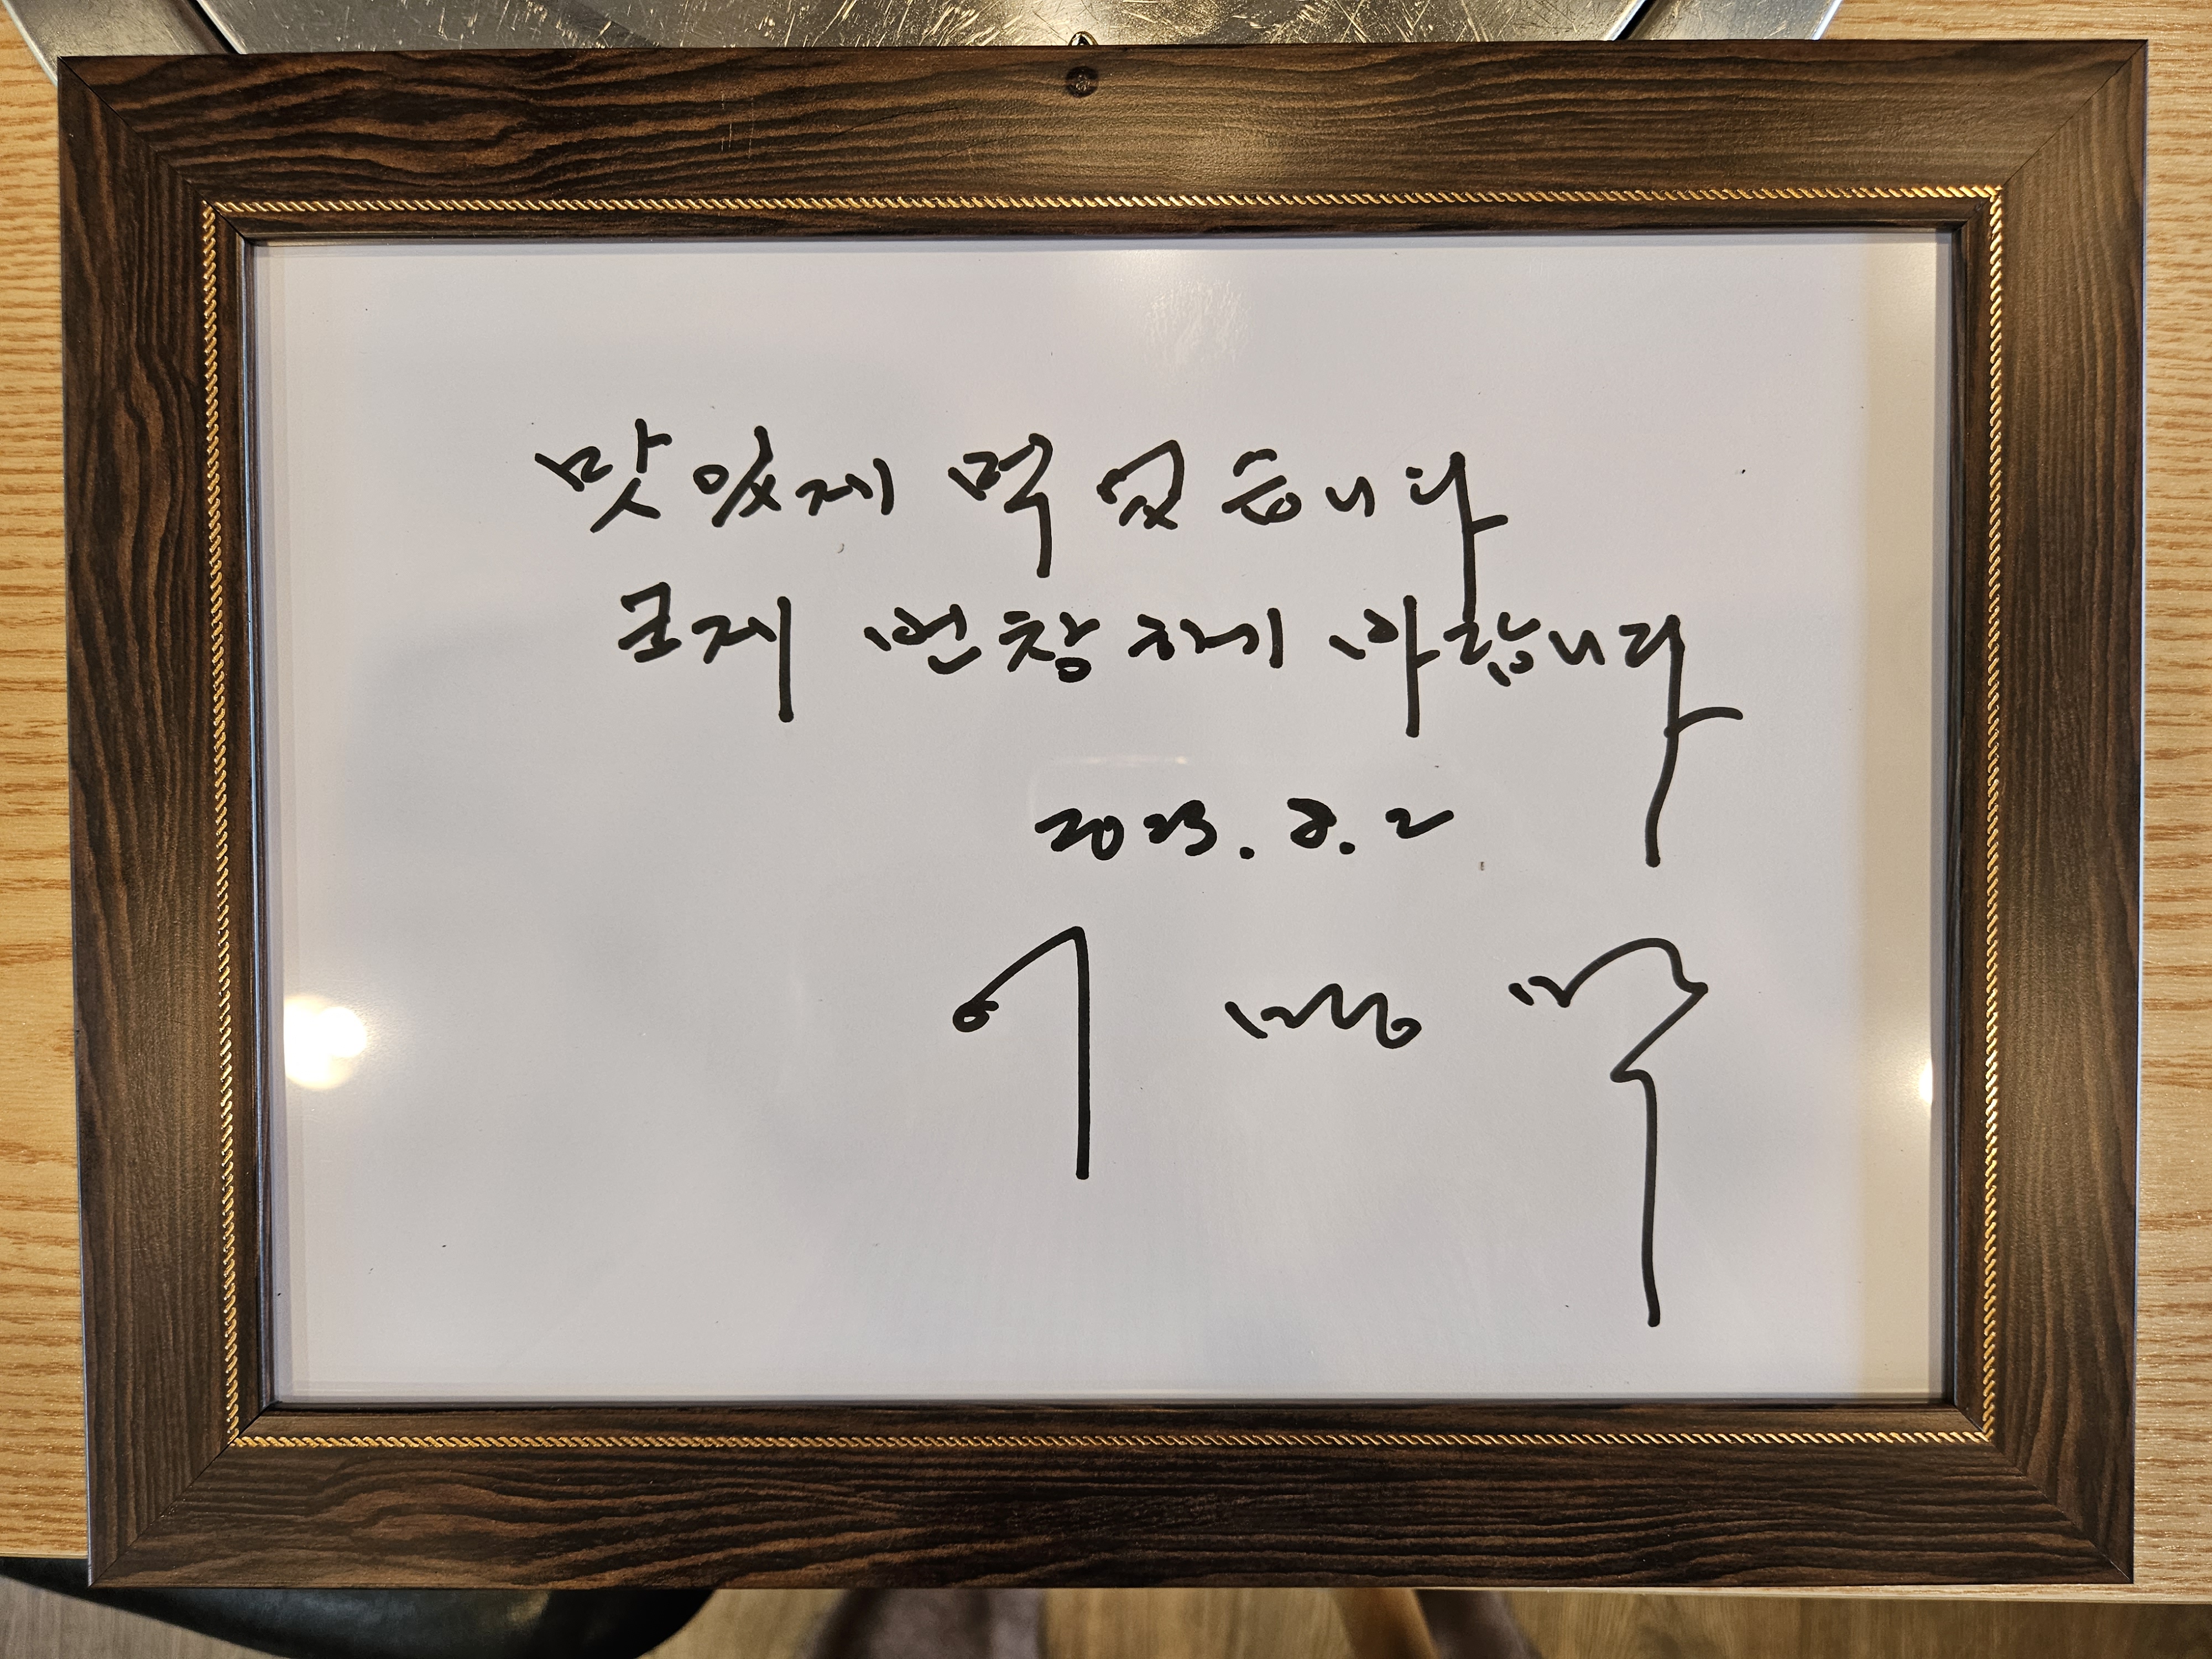 맛있게 먹었습니다
크게 번창하기 바랍니다
2023. 2. 2
이